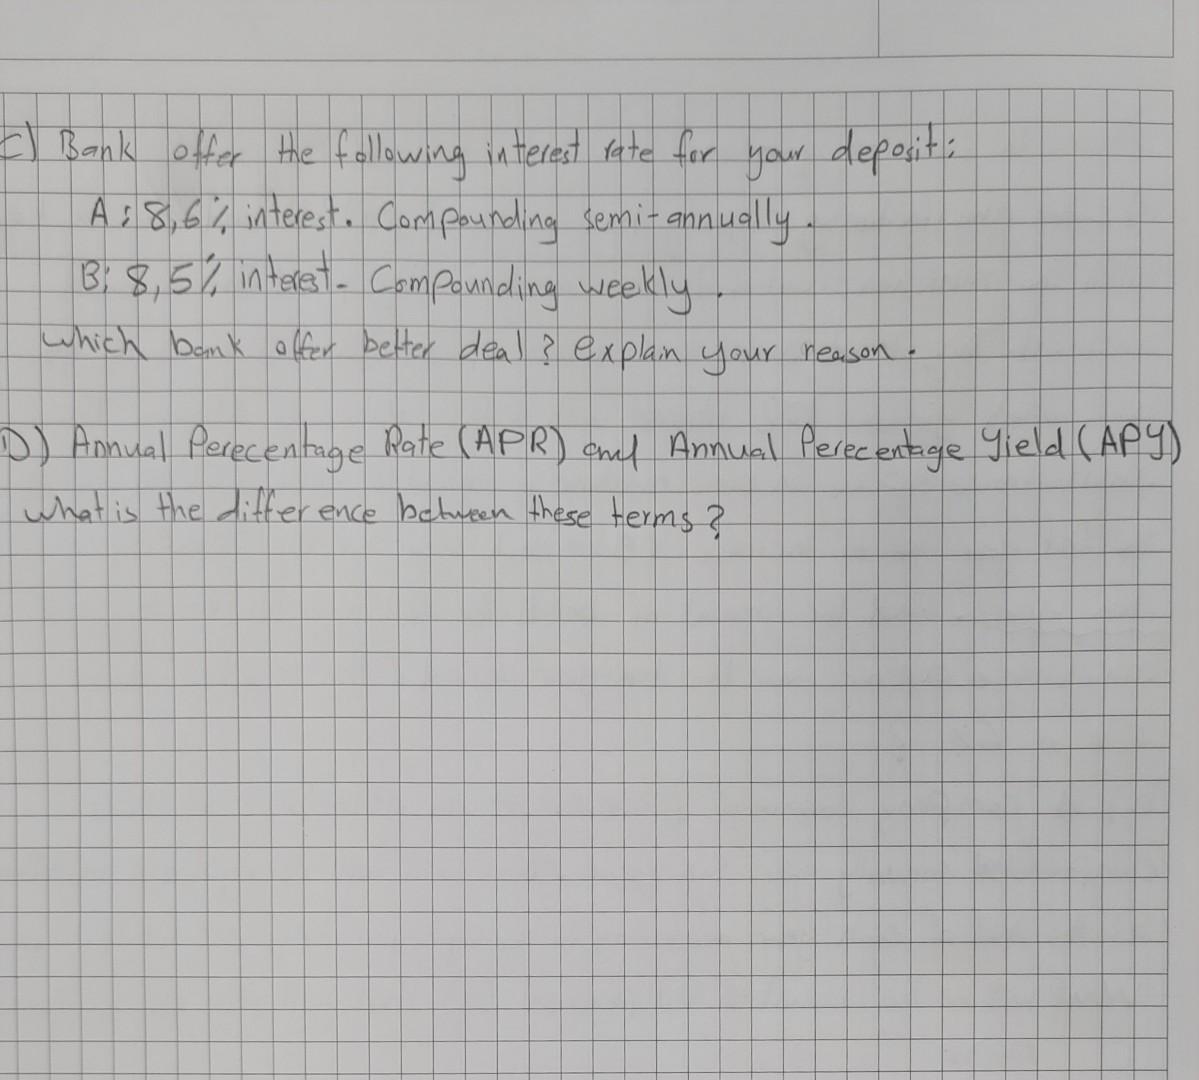 C) Bank offer the following interest rate for your deposit:
A: 8,6% interest. Compounding semi-annually.
B: 8,5% interest. Compounding weekly.
which bank offer better deal? explain your reason.
D) Annual Perecentage Rate (APR) and Annual Perecentage Yield (APY)
what is the difference between these terms?